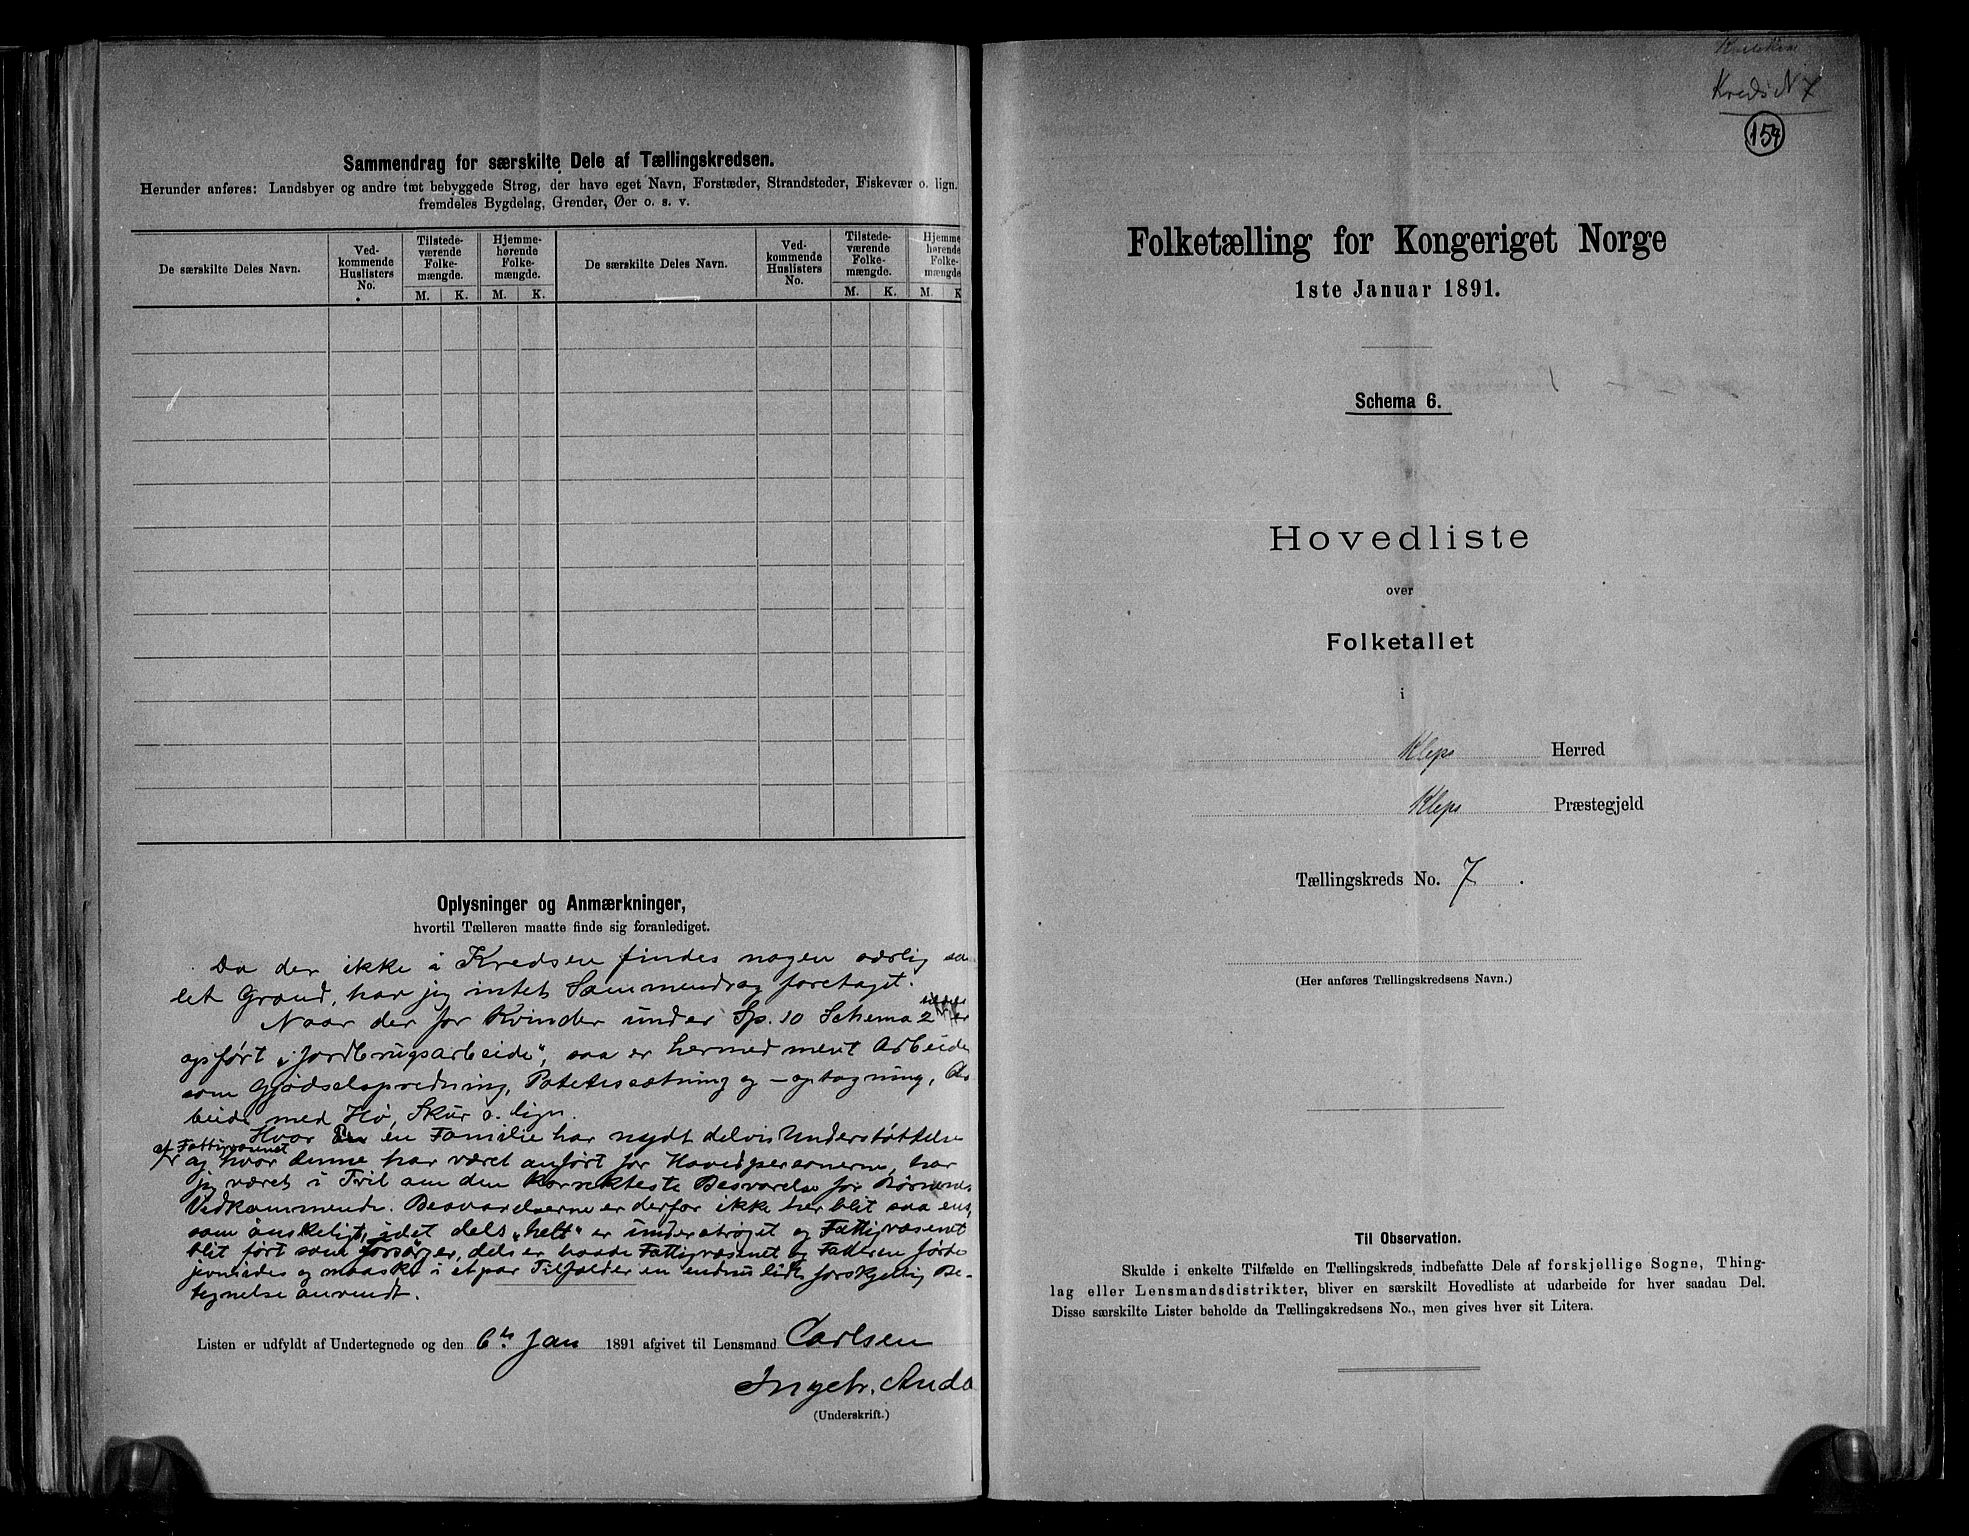 Sammendrag for særskilte Dele af Tællingskredsen.
Herunder anføres: Landsbyer og andre tæt bebyggede Strøg, der have eget Navn, Forstæder, Strandsteder, Fiskevær o. lign.
fremdeles Bygdelag, Grender, Øer o. s. v.
De særskilte Deles Navn.
Ved-
kommende
Huslisters
No.
Tilstede-
værende
Folke-
mængde.
Hjemme-
hørende
Folke-
mængde.
M. K. M. K.
De særskilte Deles Navn.
Ved-
kommende
Huslisters
No.
Tilstede-
værende
Folke-
mængde.
Hjemme-
hørende
Folke-
mængde
M. K. M. K
Oplysninger og Anmærkninger,
hvortil Tælleren maatte finde sig foranlediget.
Da der ikke i Kredsen findes nogen særlig sam
let Grænd, har jeg intet Sammendrag foretaget.
Naar der for Kvinder under Sp. 10 Schema 2 er
opført "Jordbrugsarbeide", saa er hermed ment Arbeide
som Gjødselspredning, Potetessætning og - optagning, Ar
beide med Hø, Skur o. lign.
Hvor en Familie har nydt delvis Understøttelse
af Fattigvæsenet
og hvor denne har været anført for Hovedpersonerne, har
jeg været i Tvil om den korrekteste Besvarelse for Børnenes
Vedkommende. Besvarelserne er derfor ikke her blit saa ens,
som ønskeligt, idet dels "helt" er understrøget og Fattigvæsenet
blit ført som Forsørger, dels er baade Fattigvæsenet og Faderen førte
jevnsides og maaske i et par Tilfælder en endnu lidt forskjellig Be-
tegnelse anvendt.
Listen er udfyldt af Undertegnede og den 6te Jan 1891 afgivet til Lensmand Carlsen
Ingebr. Anda
(Underskrift.)
Kreds N 7
154
Folketælling for Kongeriget Norge
1ste Januar 1891.
Schema 6.
Hovedliste
over
Folketallet
i
Klepp Herred
Klepp Præstegjeld
Tællingskreds No. 7.
(Her anføres Tællingskredsens Navn.)
Til Observation.
Skulde i enkelte Tilfælde en Tællingskreds indbefatte Dele af forskjellige Sogne, Thing-
lag eller Lensmandsdistrikter, bliver en særskilt Hovedliste at udarbeide for hver saadan Del.
Disse særskilte Lister beholde da Tællingskredsens No., men gives hver sit Litera.